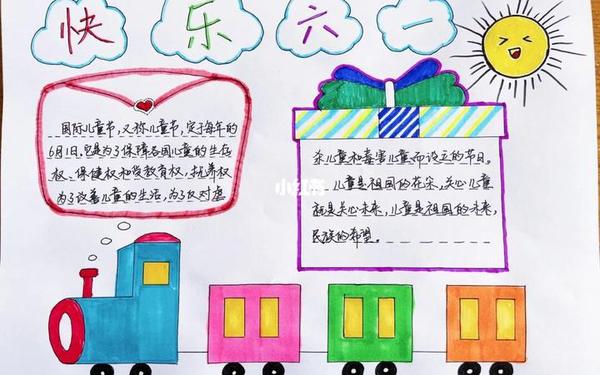 快乐六一
国际儿童节,又称儿童节,定于每年的
6月1日,它是为了保障各国儿童的生存
权、保健权和受教育权、抚养权
为了改善儿童的生活,为了反对虐
杀儿童和毒害儿童而设立的节日。
儿童是祖国的花朵,关心儿童
就是关心未来,儿童是祖国的未来,
民族的希望。
小红书